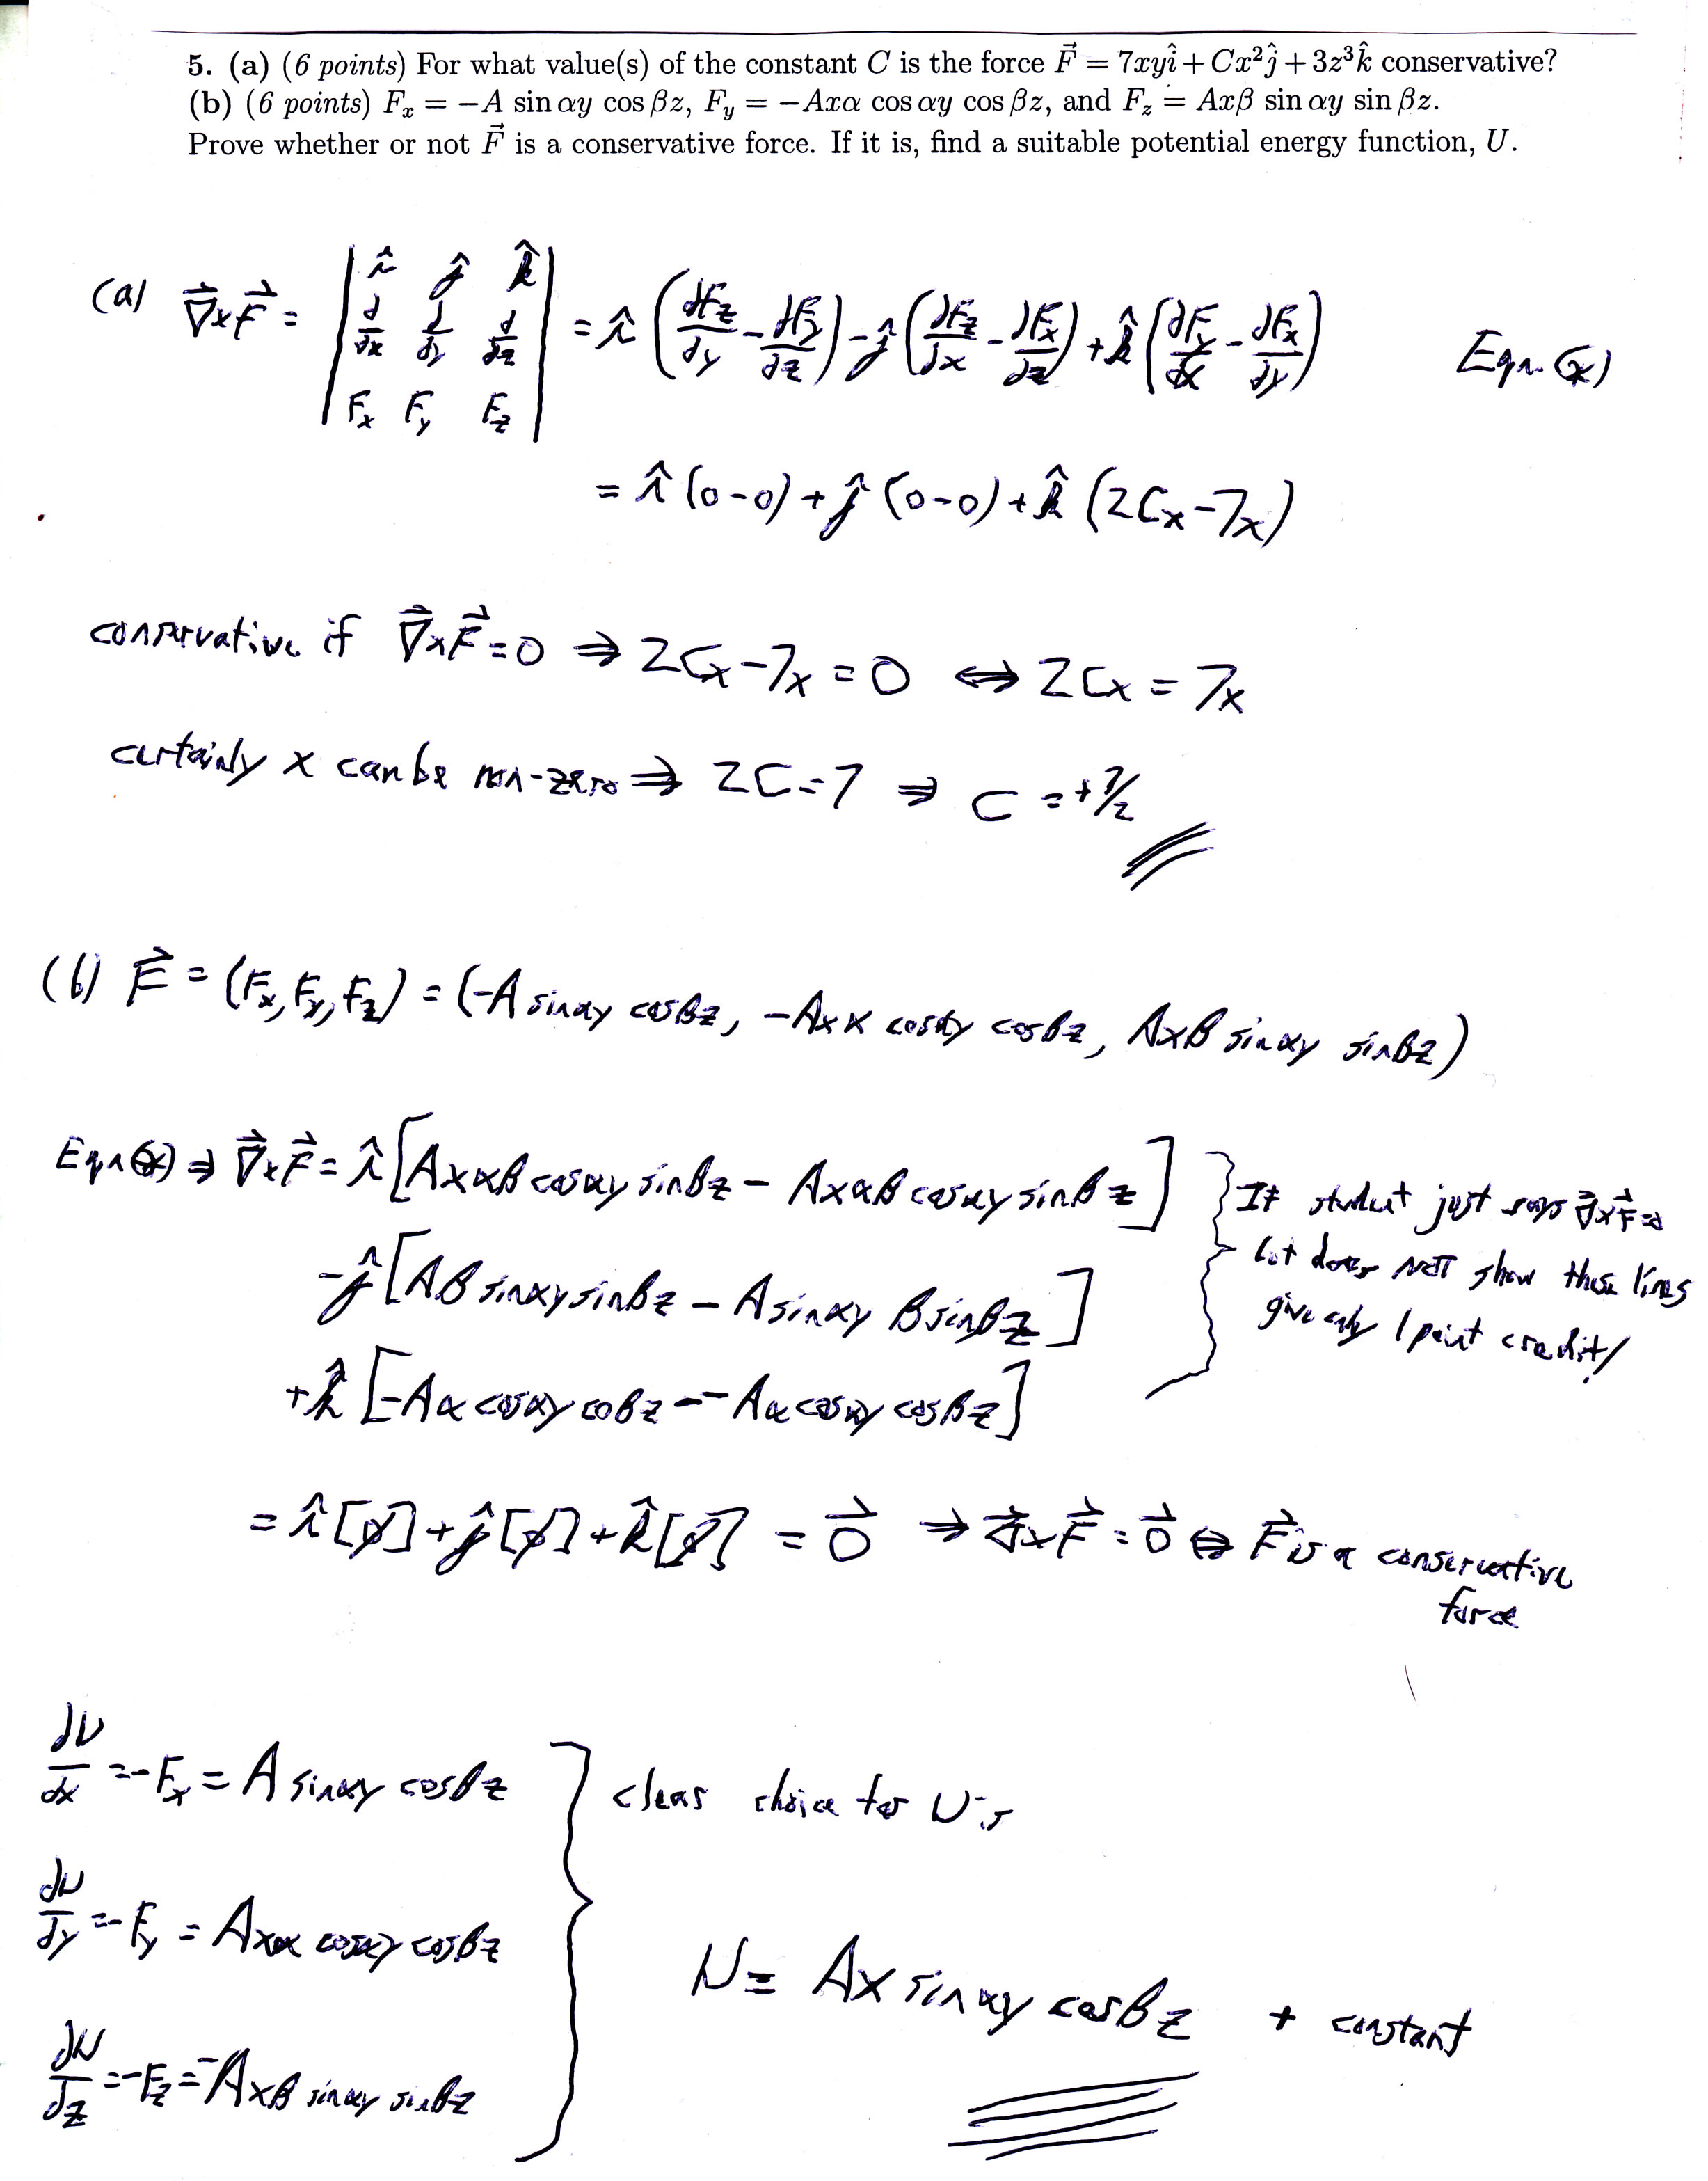 5. (a) (6 points) For what value(s) of the constant C is the force F⃗ = 7xyî + Cx²ĵ + 3z³k̂ conservative?
(b) (6 points) Fx = −A sin αy cos βz, Fy = −Axα cos αy cos βz, and Fz = Axβ sin αy sin βz.
Prove whether or not F⃗ is a conservative force. If it is, find a suitable potential energy function, U.
(a) ∇⃗×F⃗ = | î ĵ k̂ ; ∂/∂x ∂/∂y ∂/∂z ; Fx Fy Fz | = î (∂Fz/∂y − ∂Fy/∂z) − ĵ (∂Fz/∂x − ∂Fx/∂z) + k̂ (∂Fy/∂x − ∂Fx/∂y) Eqn. (*)
= î (0−0) + ĵ (0−0) + k̂ (2Cx−7x)
conservative if ∇⃗×F⃗=0 ⇒ 2Cx−7x = 0 ⇔ 2Cx = 7x
certainly x can be non-zero ⇒ 2C=7 ⇒ C = +7/2
(b) F⃗ = (Fx, Fy, Fz) = (−A sinαy cosβz, −Axα cosαy cosβz, Axβ sinαy sinβz)
Eqn (*) ⇒ ∇⃗×F⃗ = î [Axαβ cosαy sinβz − Axαβ cosαy sinβz]
−ĵ [Aβ sinαy sinβz − A sinαy β sinβz]
+k̂ [−Aα cosαy cosβz − −Aα cosαy cosβz]
If student just says ∇⃗×F⃗=0
but does NOT show these lines
give only 1 point credit!
= î [0] + ĵ [0] + k̂ [0] = 0⃗ ⇒ ∇⃗×F⃗ = 0⃗ ⇔ F⃗ is a conservative
force
∂U/∂x = −Fx = A sinαy cosβz
clear choice for U is
∂U/∂y = −Fy = Axα cosαy cosβz
U = Ax sinαy cosβz + constant
∂U/∂z = −Fz = −Axβ sinαy sinβz